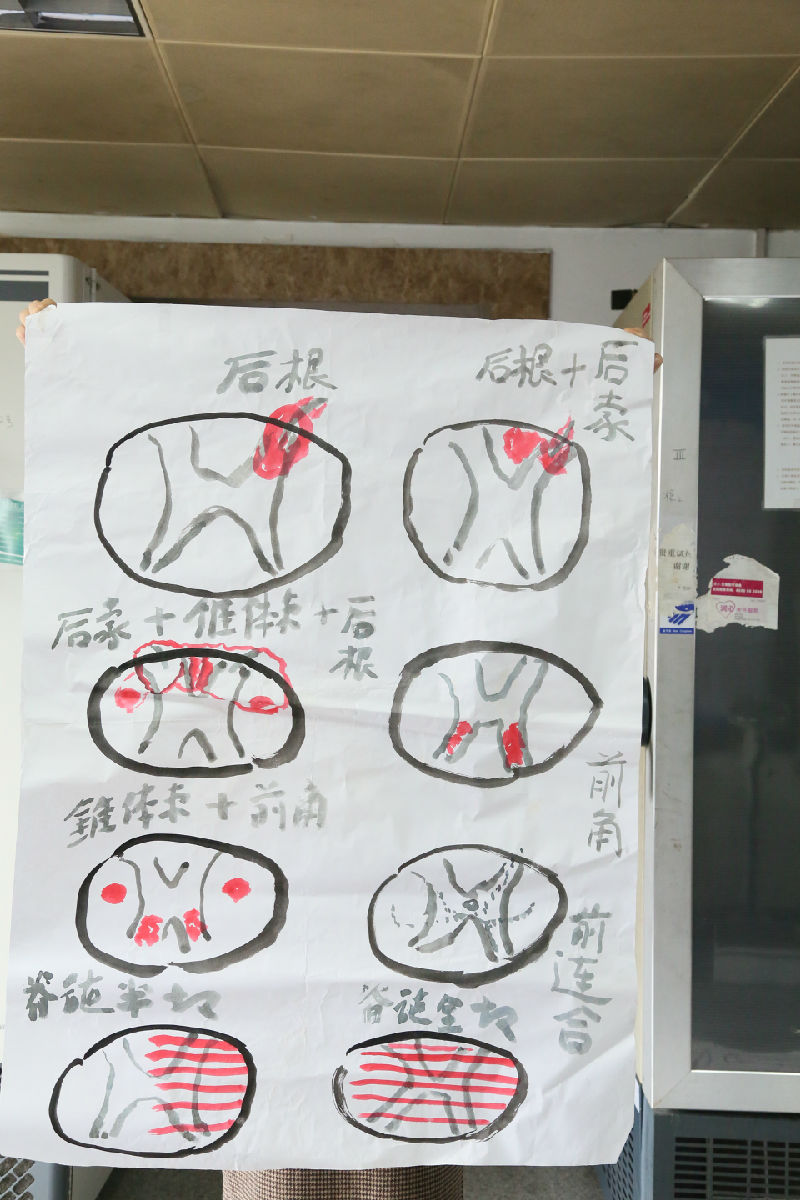 后根
后根+后
索
后索+锥体束+后
根
前
角
锥体束+前角
前
连
合
脊髓半切
脊髓全切
谢谢